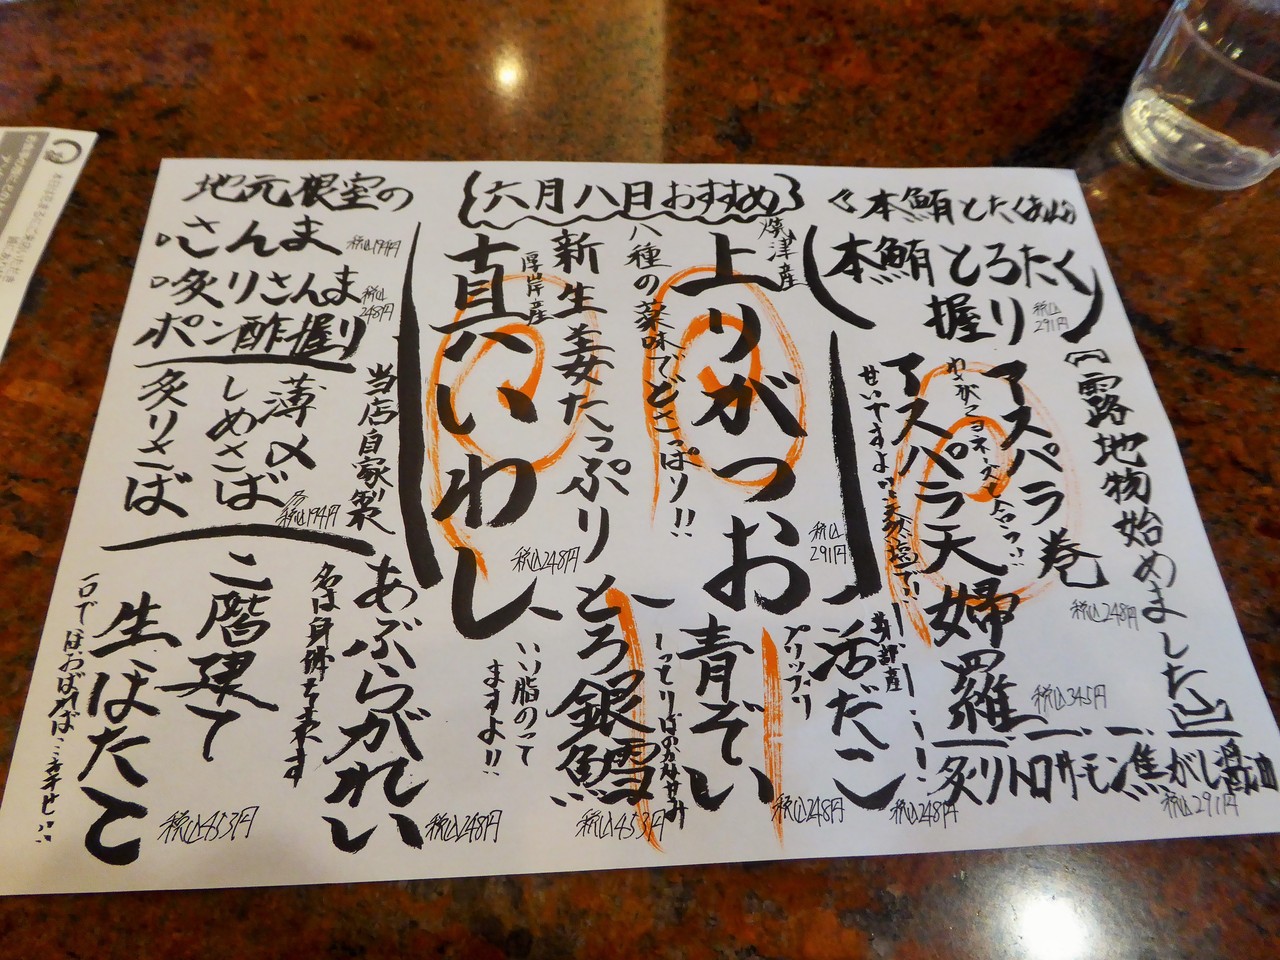 六月八日おすすめ
本鮪とたくあん
本鮪とろたく
握り
税込291円
露地物始めました
アスパラ巻
税込248円
わさびマヨネーズと合うっ
アスパラ天婦羅
税込345円
せいですよ
天然塩で
炙りトロサーモン焦がし醤油
税込291円
焼津産
上りがつお
税込291円
八種の薬味でどさっぱり!!
新生姜たっぷり
厚岸産
真いわし
税込248円
いい脂のって
ますよ!!
活だこ
税込248円
プリップリ
青ぞい
税込248円
とろ銀鱈
税込453円
地元根室の
さんま
税込194円
炙りさんま
ポン酢握り
税込248円
当店自家製
薄〆
しめさば
炙りさば
税込194円
あぶらがれい
税込248円
名は身体を表す
二階建て
生ほたて
税込453円
一口でほおばれば…幸せ…